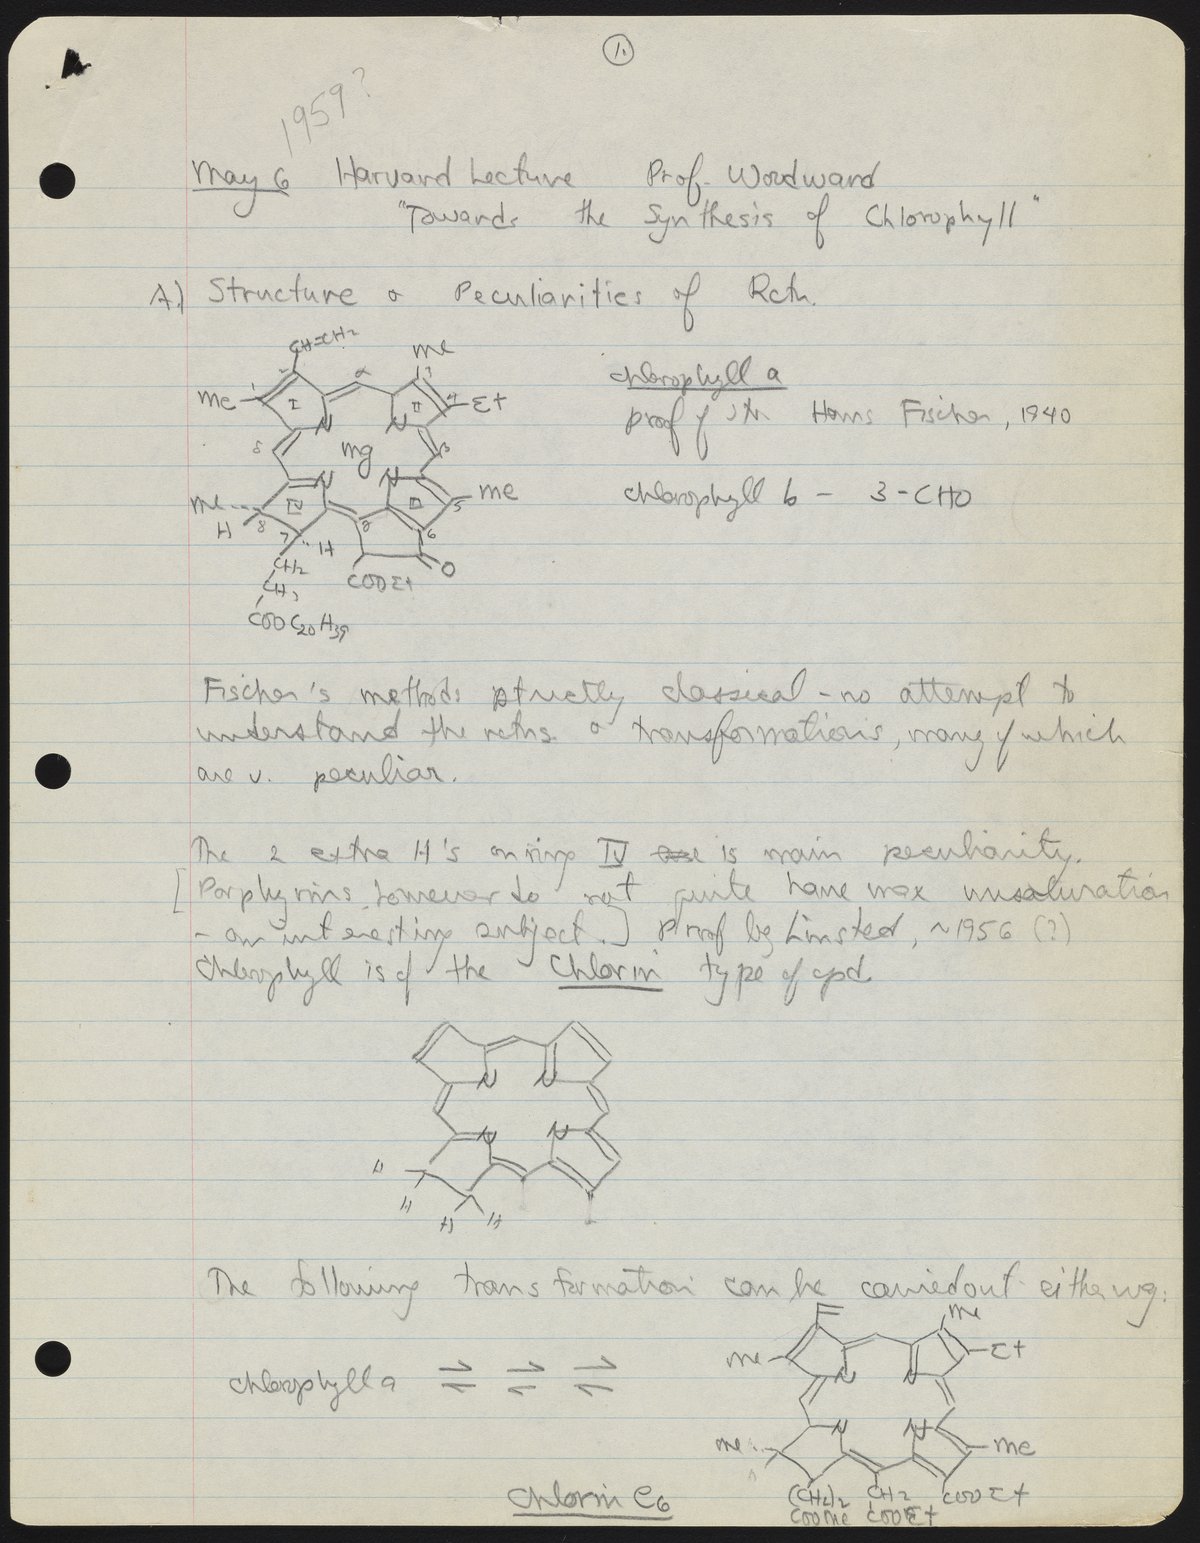 1.
1959?
May 6 Harvard Lecture Prof. Woodward
"Towards the Synthesis of Chlorophyll"
A.) Structure & Peculiarities of Rctn.
CH=CH2 Me
Me 1 2 I α II 3 4 Et
N N
δ Mg β
N N
Me IV III Me
H 8 7 H γ 6 5
CH2 COOEt O
CH2
COOC20H39
chlorophyll a
proof of str Hans Fischer, 1940
chlorophyll b - 3-CHO
Fischer's methods strictly classical - no attempt to
understand the rctns & transformations, many of which
are v. peculiar.
The 2 extra H's on ring IV is main peculiarity.
[Porphyrins however do not quite have max unsaturation
- an interesting subject.] Proof by Linsted, ~1956 (?)
Chlorophyll is of the Chlorin type of cpd.
N N
N N
H
H H H
The following transformation can be carried out either way:
chlorophyll a ⇌ ⇌ ⇌
Me
Me Et
N N
N N
Me Me
(CH2)2 CH2 COOEt
COOMe COOEt
Chlorin e6